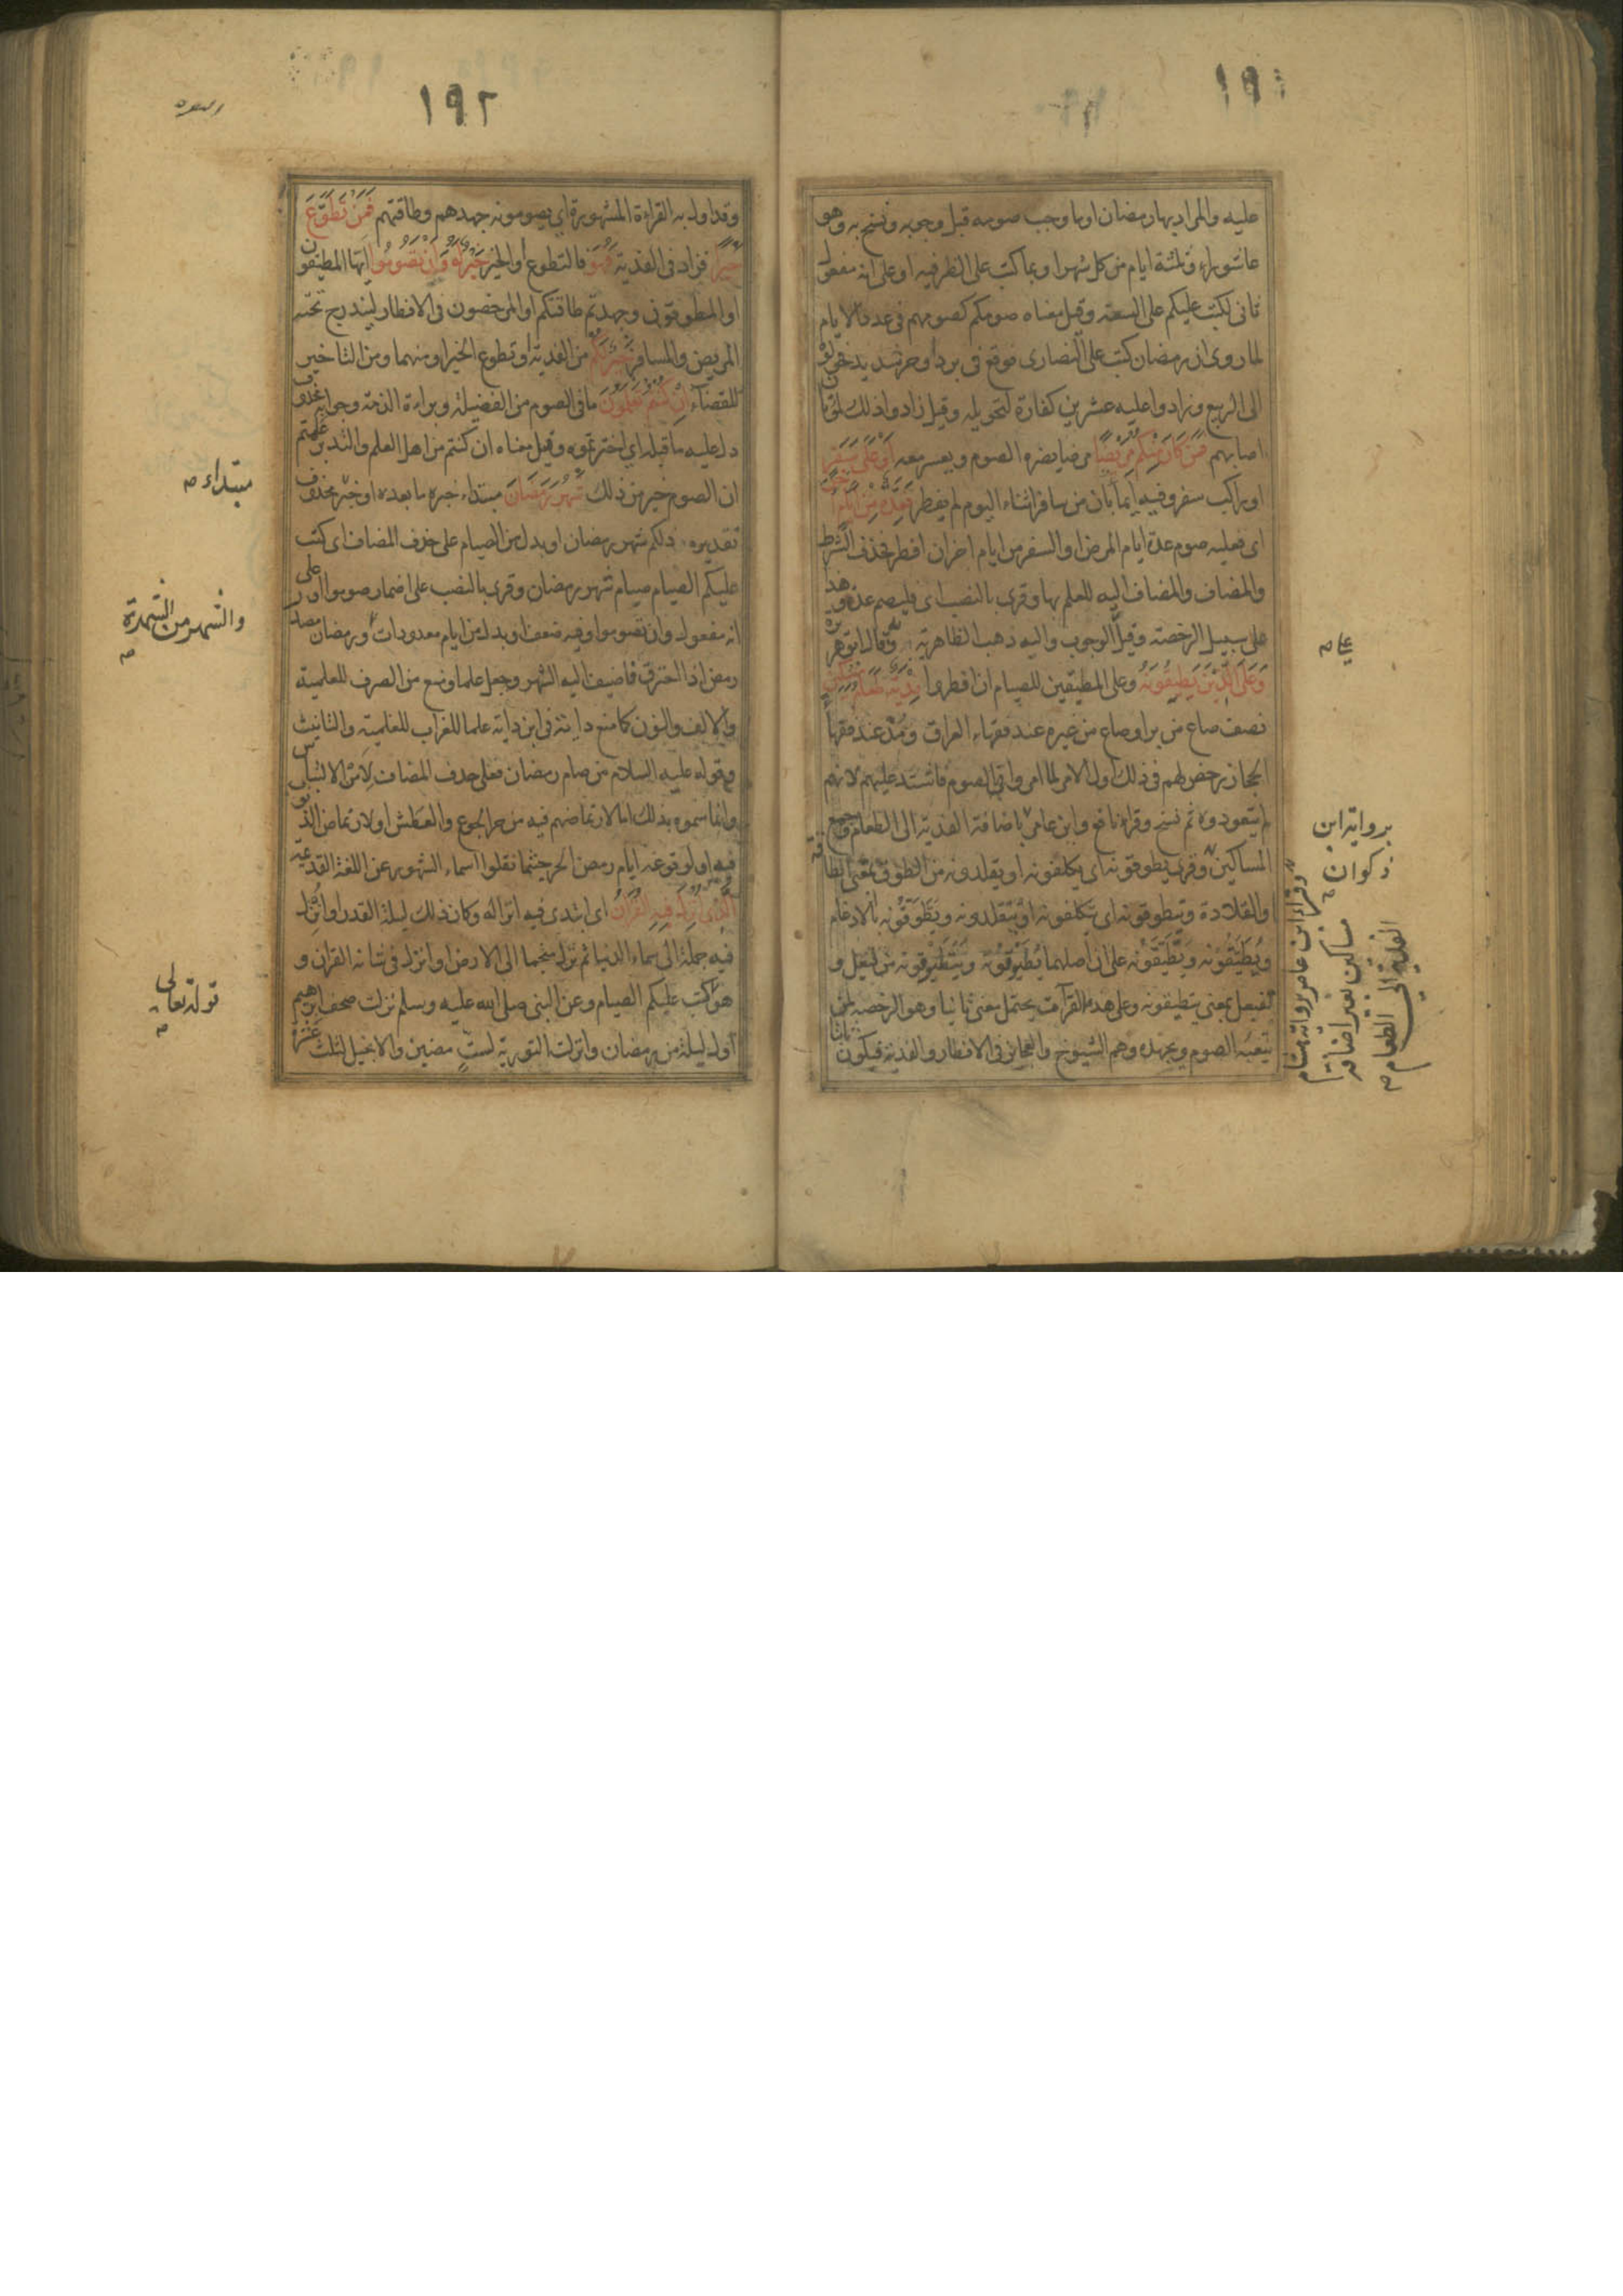 ١٩
عليه والمراد بها رمضان او ما وجب صومه قبل وجوبه ونسخ به وهو
عاشوراء وثلثة ايام من كل شهر او بما كتب على الظرفيه او على انه مفعول
ثانى لكتب عليكم على السعة وقيل معناه صومكم كصومهم فى عدد الايام
لما روى ان رمضان كتب على النصارى فوقع فى برد او حر شديد فحولوه
الى الربيع وزادوا عليه عشرين كفارة لتحويله وقيل زادوا ذلك لموتان
اصابهم فَمَنْ كَانَ مِنْكُمْ مَرِيْضًا مرضا يضره الصوم ويعسر معه اَوْ عَلَى سَفَرٍ
او راكب سفر وفيه ايماء بان من سافر اثناء اليوم لم يفطر فَعِدَّةٌ مِنْ اَيَّامٍ اُخَرَ
اى فعليه صوم عدة ايام المرض او السفر من ايام اخر ان افطر فحذف الشرط
والمضاف والمضاف اليه للعلم بها وقرى بالنصب اى فليصم عدة وهذا
على سبيل الرخصة وقيل الوجوب واليه ذهب الظاهرية وبه قال ابو هريرة
وَعَلَى الَّذِيْنَ يُطِيْقُوْنَهُ وعلى المطيقين للصيام ان افطروا فِدْيَةٌ طَعَامُ مِسْكِيْنٍ
نصف صاع من بر او صاع من غيره عند فقهاء العراق ومُدّ عند فقهاء
الحجاز رخص لهم فى ذلك اول الامر لما امروا بالصوم فاشتد عليهم لانهم
لم يتعودوه ثم نسخ وقراء نافع وابن عامر باضافة الفدية الى الطعام وجمع
المساكين وقرى يطوقونه اى يكلفونه او يقلدونه من الطوق بمعنى الطاقة
او القلادة ويتطوقونه اى يتكلفونه او يتقلدونه ويَطَّوَّقُونه بالادغام
ويُطَيَّقُونه ويَطَّيَّقُونه على ان اصلهما يُطَيْوَقُونه ويَتَطَيْوَقُونه من فيعل و
تفيعل بمعنى يتطيقونه وعلى هذه القرآت يحتمل معنى ثانيا وهو الرخصة لمن
يتعبه الصوم ويجهده وهم الشيوخ والعجائز فى الافطار والفدية فيكون ثابتا
عام
برواية ابن
ذكوان
وقراء ابن عامر برواية هشام
مساكين بغير اضافة
الفدية الى الطعام
١٩٢
البقرة
وقد اول به القراءة المشهورة اي يصومونه جهدهم وطاقتهم فَمَنْ تَطَوَّعَ
خَيْرًا فزاد فى الفدية فَهُوَ فالتطوع او الخير خَيْرٌ لَهُ وَاَنْ تَصُوْمُوا ايها المطيقون
او المطوقون وجهدتم طاقتكم او المرخصون فى الافطار ليندرج تحته
المريض والمسافر خَيْرٌ لَكُمْ من الفدية او تطوع الخير او منهما ومن التاخير
للقضاء اِنْ كُنْتُمْ تَعْلَمُوْنَ ما فى الصوم من الفضيلة وبراءة الذمة وجوابه محذوف
دل عليه ما قبله اي اخترتموه وقيل معناه ان كنتم من اهل العلم والتدبر علمتم
ان الصوم خير من ذلك شَهْرُ رَمَضَانَ مبتداء خبره ما بعده او خبر محذوف
تقديره ذلكم شهر رمضان او بدل من الصيام على حذف المضاف اى كتب
عليكم الصيام صيام شهر رمضان وقرى بالنصب على اضمار صوموا او على
انه مفعول وان تصوموا وفيه ضعف او بدل من ايام معدودات ورمضان مصدر
رمض اذا احترق فاضيف اليه الشهر وجعل علما ومنع من الصرف للعلمية
والالف والنون كما منع داية فى ابن داية علما للغراب للعلمية والتانيث
وقوله عليه السلام من صام رمضان فعلى حذف المضاف لامن الالتباس
وانما سموه بذلك اما لارتماضهم فيه من حر الجوع والعطش او لارتماض الذنوب
فيه او لوقوعه ايام رمض الحر حيثما نقلوا اسماء الشهور عن اللغة القديمة
اَلَّذِى اُنْزِلَ فِيْهِ القُرْاٰنُ اى ابتدى فيه انزاله وكان ذلك ليلة القدر او انزل
فيه جملة الى سماء الدنيا ثم نزل منجما الى الارض او انزل فى شانه القران و
هو كتب عليكم الصيام وعن النبى صلى الله عليه وسلم نزلت صحف ابرهيم
اول ليلة من رمضان وانزلت التورية لستٍ مضين والانجيل لثلث عشرة
مبتداء
والشهر من الشهرة
قوله تعالى